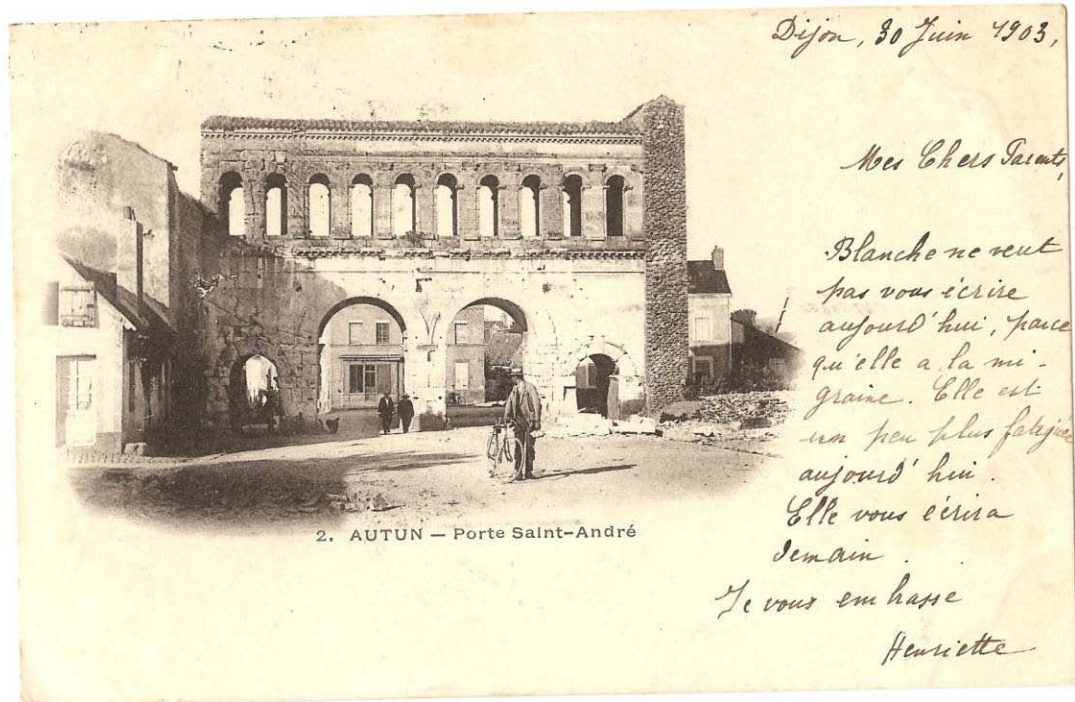 Dijon, 30 Juin 1903,
Mes Chers Parents,
Blanche ne veut
pas vous écrire
aujourd'hui, parce
qu'elle a la mi-
graine. Elle est
un peu plus fatiguée
aujourd'hui.
Elle vous écrira
demain.
Je vous embrasse
Henriette
2. AUTUN — Porte Saint-André